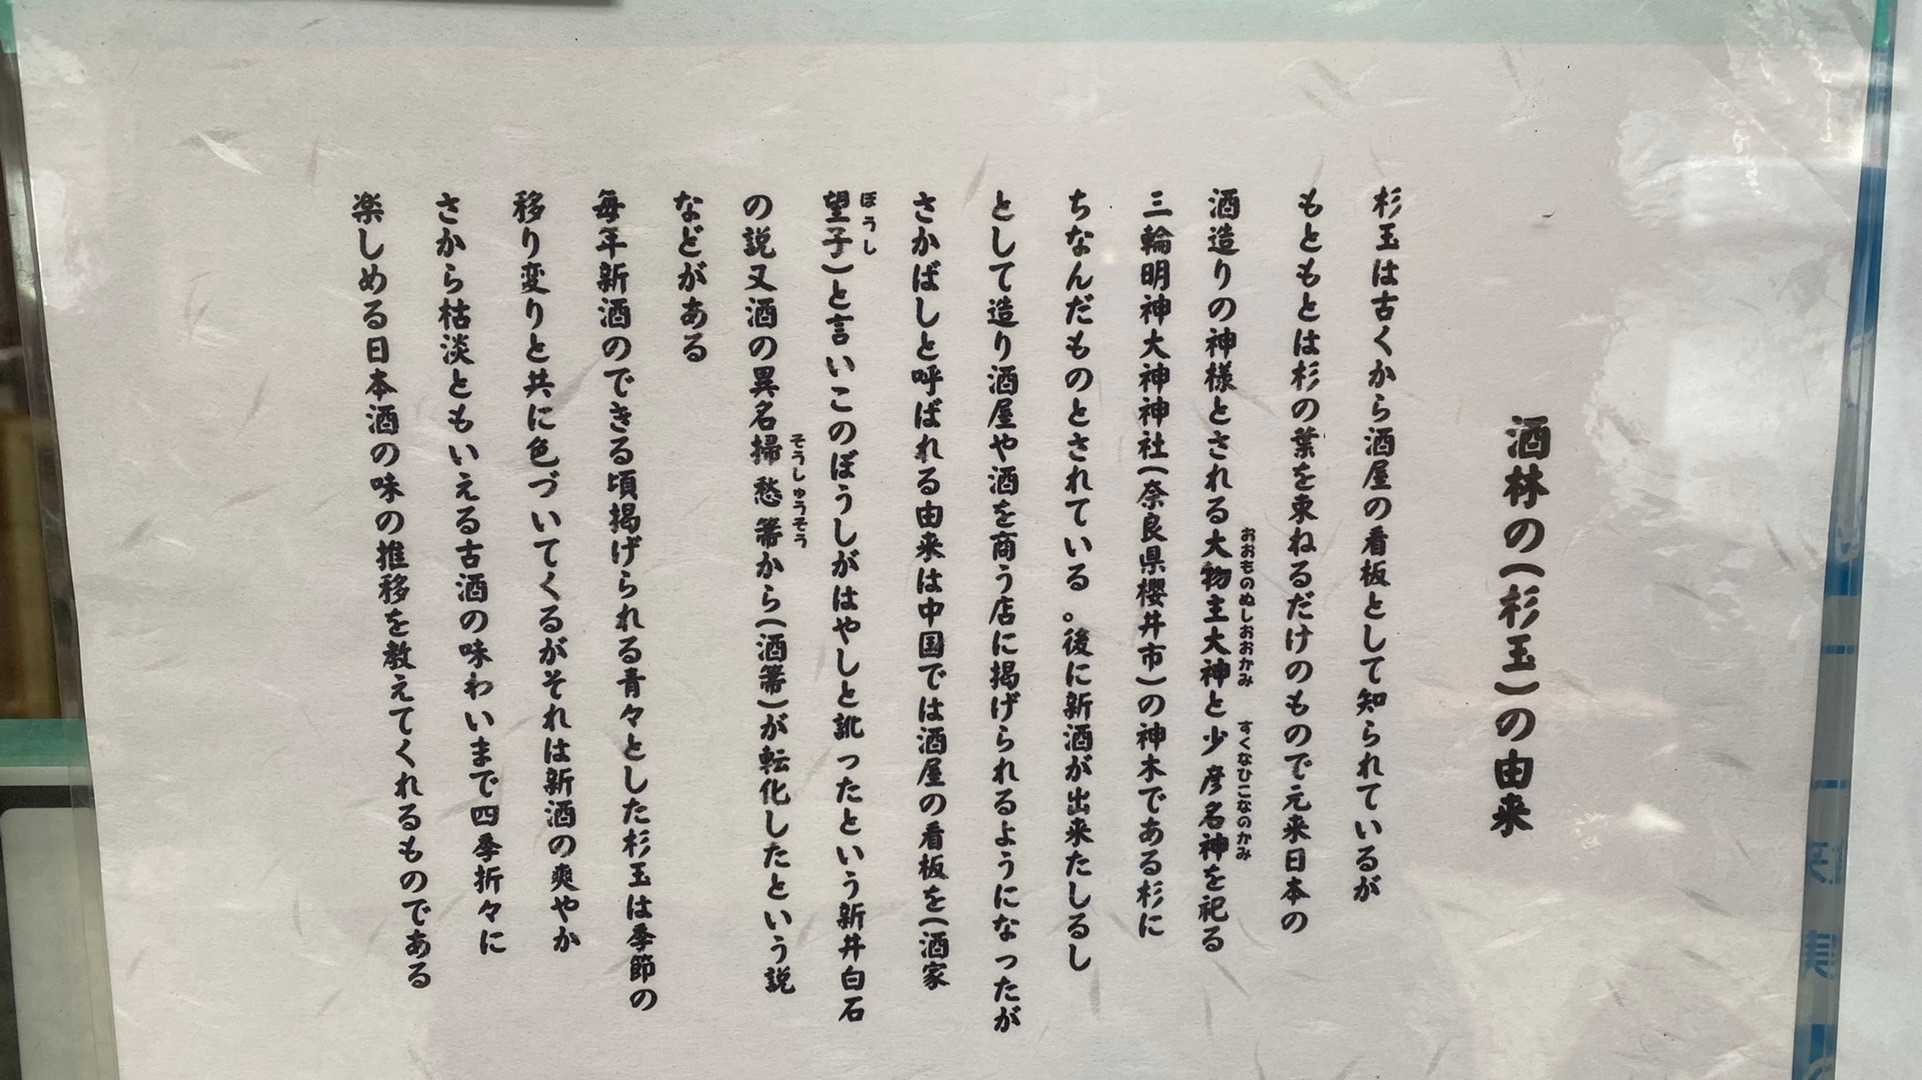 酒林の(杉玉)の由来
杉玉は古くから酒屋の看板として知られているが
もともとは杉の葉を束ねるだけのもので元来日本の
酒造りの神様とされる大物主大神と少彦名神を祀る
おおものぬしおおかみ
すくなひこなのかみ
三輪明神大神神社(奈良県櫻井市)の神木である杉に
ちなんだものとされている。後に新酒が出来たしるし
として造り酒屋や酒を商う店に掲げられるようになったが
さかばしと呼ばれる由来は中国では酒屋の看板を(酒家
望子)と言いこのぼうしがはやしと訛ったという新井白石
ぼうし
の説又酒の異名掃愁箒から(酒箒)が転化したという説
そうしゅうそう
などがある
毎年新酒のできる頃掲げられる青々とした杉玉は季節の
移り変りと共に色づいてくるがそれは新酒の爽やか
さから枯淡ともいえる古酒の味わいまで四季折々に
楽しめる日本酒の味の推移を教えてくれるものである